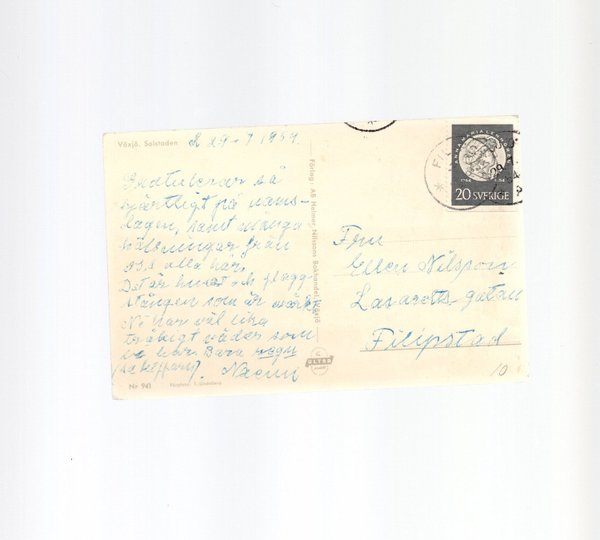 Växjö. Solstaden
R 29-7 1954.
Gratulerar så
hjärtligt på namns-
dagen, samt många
hälsningar från
oss alla här.
Det är huset och flagg-
stången som är märkt
Ni har väl lika
tråkigt väder som
vi har Bara regn
(sa kopparn). Naemi
Nr 941
Förlag: AB Helmer Nilssons Bokhandel, Växjö
ULTRA
ANNA MARIA LENNGREN
1754
20 SVERIGE
FIL
Fru
Ellen Nilsson
Lasaretts-gatan
Filipstad
10